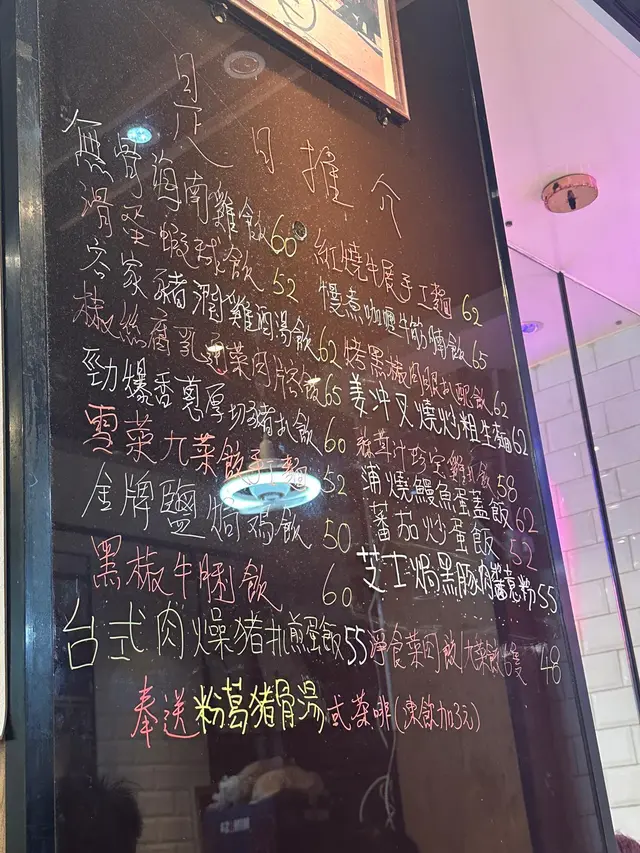 是日推介
無骨海南雞飯 60
滑蛋蝦球飯 52
客家豬潤雞酒湯飯 62
椒絲腐乳通菜肉片飯 65
勁爆香蔥厚切豬扒飯 60
雪菜九菜餃手工麵 52
金牌鹽焗鸡飯 50
黑椒牛脷飯 60
台式肉燥猪扒煎蛋飯 55
紅燒牛展手工麵 62
慢煮咖喱牛筋腩飯 65
烤黑椒肉眼扒配飯 62
姜沖叉燒炒粗生麵 62
雞扒飯 58
浦燒鰻魚蛋蓋飯 62
蕃茄炒蛋飯 52
芝士焗黑豚肉蕃茄粉 55
淨食菜肉飯 48
奉送粉葛猪骨湯或茶啡(凍飲加3元)